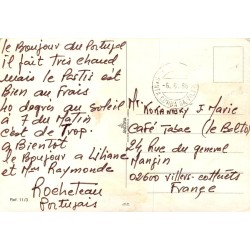 le Boujour du Portugal
il fait tres chaud
mais le Partis est
Bien au Frais
40 degrés au Soleil
à 7 du Matin
c'est de Trop.
a Bientôt
le Boujour a Liliane
et Mes Raymonde
Rocheteau
Portugais
Mr. KORANSKY J Marie
Café Tabac (le Balto)
24 Rue du general
Mangin
02600 Villers-cotterets
France